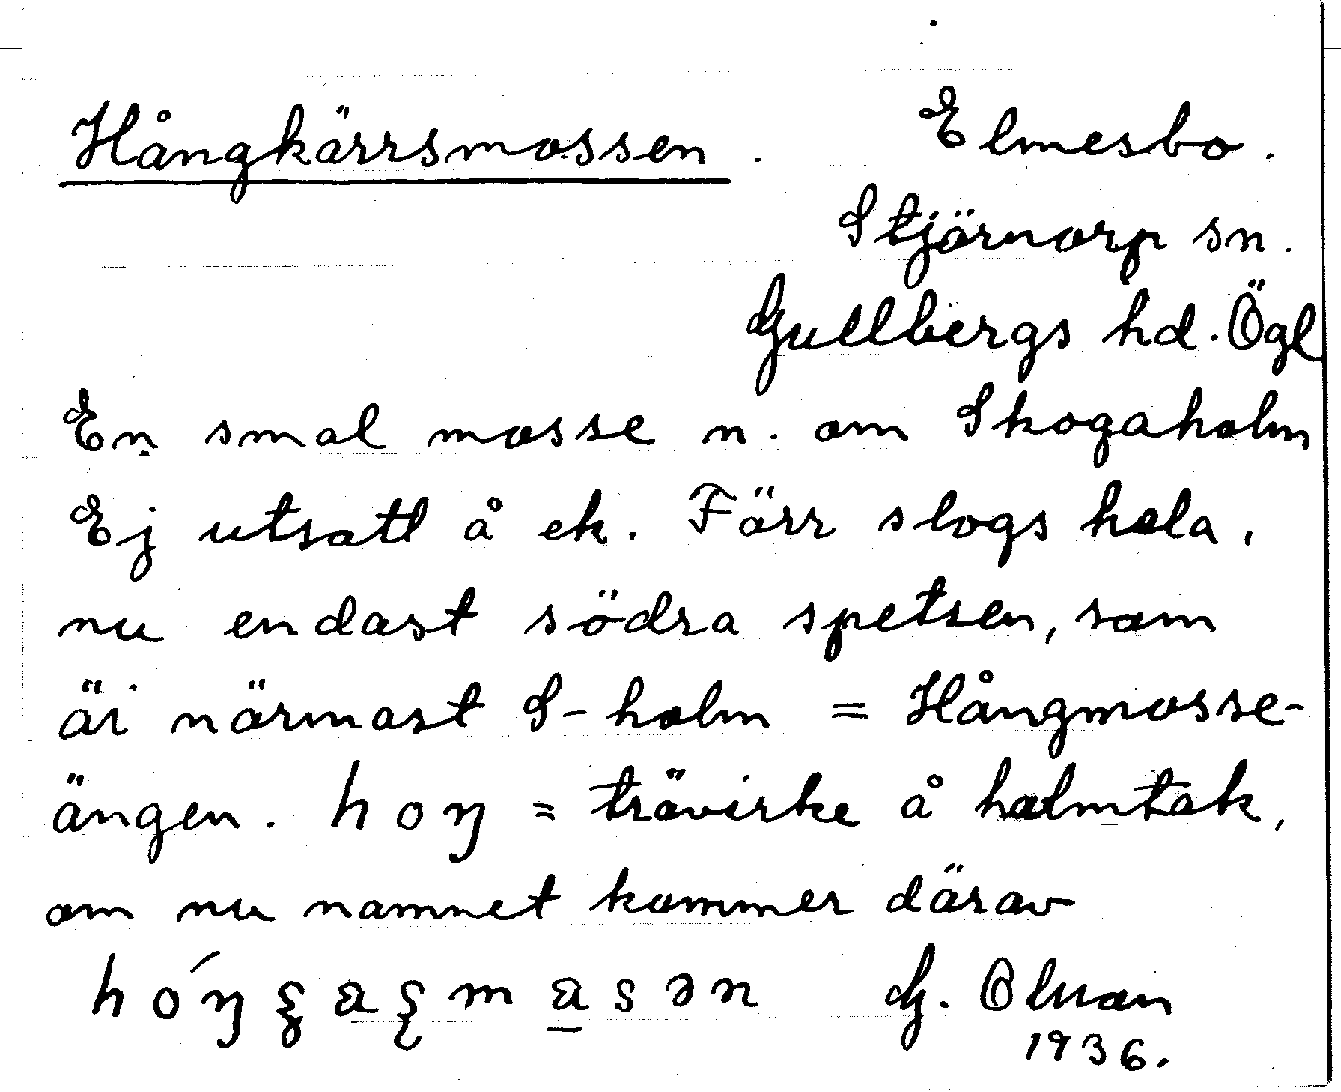 Hångkärrsmossen. Elmesbo.
Stjärnorp sn.
Gullbergs hd. Ögl
En smal mosse n. om Skogaholm
Ej utsatt å ek. Förr slogs hela,
nu endast södra spetsen, som
är närmast S-holm = Hångmosse-
ängen. hoŋ = trävirke å halmtak,
om nu namnet kommer därav
G. Olman
1936.